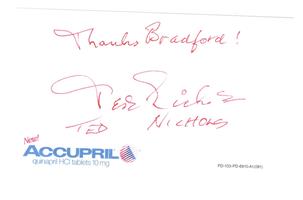 Thanks Bradford!
Ted Nichols
TED NICHOLS
New!
ACCUPRIL
quinapril HCl tablets 10 mg